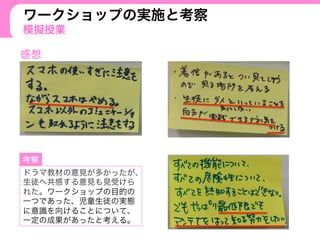 ワークショップの実施と考察
模擬授業
感想
スマホの使いすぎに注意を
する。
ながらスマホはやめる。
スマホ以外のコミュニケーショ
ンも取れるように注意をする
・着信があるとつい見てしまう
ので 見る場所を考える
・生徒にダメといっていることを
自分が実践できるよう気を
つける
考察
ドラマ教材の意見が多かったが、
生徒へ共感する意見も見受けら
れた。ワークショップの目的の
一つであった、児童生徒の実態
に意識を向けることについて、
一定の成果があったと考える。
すべての機能について、
すべての危険性について、
すべてを熟知することはできない。
でもやはり最低限でも
アンテナをはって知る努力をしたい。